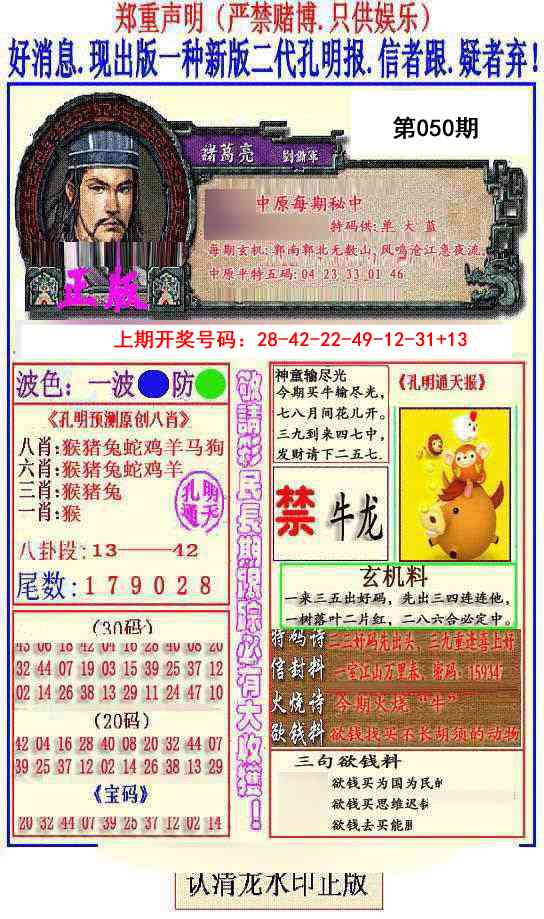 郑重声明（严禁赌博.只供娱乐）
好消息.现出版一种新版二代孔明报.信者跟.疑者弃！
第050期
諸葛亮 劉謝軍
中原每期秘中
特码供:单 大 蓝
每期玄机:郭南郭北无數山,风鸣沧江急夜流.
中原平特五码:04 23 33 01 46
正版
上期开奖号码：28-42-22-49-12-31+13
波色：一波 防
《孔明预测原创八肖》
八肖:猴猪兔蛇鸡羊马狗
六肖:猴猪兔蛇鸡羊
三肖:猴猪兔
一肖:猴
孔明
通天
八卦段:13——42
尾数:179028
(30码)
43 06 18 42 04 16 28 40 08 20
32 44 07 19 03 15 39 25 37 12
02 14 26 38 13 29 11 24 47 10
(20码)
42 04 16 28 40 08 20 32 44 07
39 25 37 12 02 14 26 38 13 29
《宝码》
20 32 44 07 39 25 37 12 02 14
敬請彩民長期跟踪必有大收獲！
神童输尽光
今期买牛输尽光,
七八月间花儿开。
三九到来四七中,
发财请下二五七.
《孔明通天报》
禁 牛龙
玄机料
一来三五出好码，先出三四连连他,
一树落叶二片红，二八六合必定中。
特码诗 二三好码先出头，三九重逢喜上好
信封料 一室江山万里春，密码：159347
火烧诗 今期火烧“牛”
欲钱料 欲钱找买不长胡须的动物
三句欲钱料
欲钱买为国为民的
欲钱买思维迟钝
欲钱去买能
认清龙水印正版